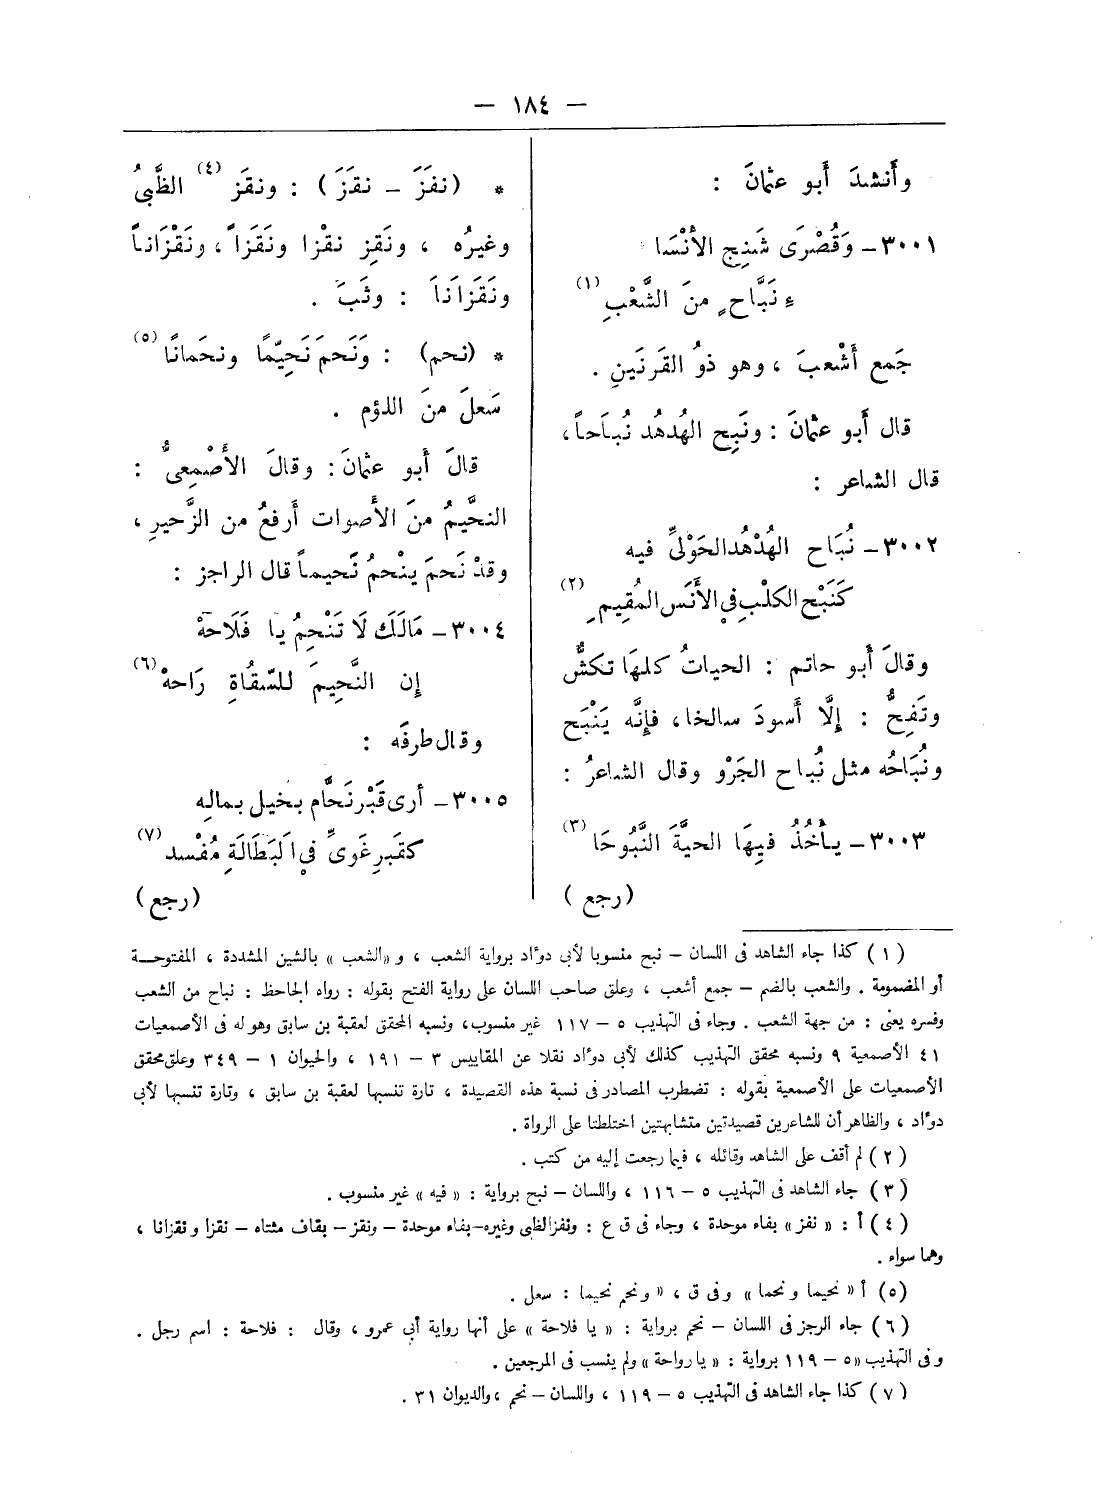 — ١٨٤ —
وأَنشدَ أَبو عثمانَ :
٣٠٠١ – وَقُصْرَى شَنِجِ الأَنْسَا
ءِ نَبَّاحٍ منَ الشَّعْبِ (١)
جَمع أَشْعبَ ، وهو ذوُ القَرنَينِ .
قال أَبو عثمانَ : ونَبِح الهُدهُد نُبَاحاً ،
قال الشاعر :
٣٠٠٢ – نُبَاح الهُدْهُد الحَوْلىِّ فيه
كَنَبْح الكلْبِ فى الأَنَس المُقِيمِ (٢)
وقالَ أَبو حاتم : الحياتُ كلهَا تكشُّ
وتَفِحُّ : إلَّا أَسودَ سالخا ، فإنَّه يَنْبَح
ونُبَاحُه مثل نُباح الجَرْو وقال الشاعرُ :
٣٠٠٣ – يأْخُذُ فيهَا الحيَّةَ النَّبُوحَا (٣)
(رجع)
* (نفَزَ – نقَزَ) : ونقَز (٤) الظَّبىُ
وغيرُه ، ونَقِز نقْزا ونَقَزاً ، ونَقْزَاناً
ونَقَزَاناَ : وثَبَ .
* (نحم) : وَنَحمَ نَحِيّمًا ونحَمانًا (٥)
سَعلَ منَ اللؤم .
قالَ أَبو عثمانَ : وقالَ الأَصْمعِىُّ :
النحَّيمُ منَ الأَصوات أَرفعُ من الزَّحيرِ ،
وقدْ نَحمَ ينْحمُ نَحيماً قال الراجز :
٣٠٠٤ – مَالَكَ لَا تَنْحِمُ يا فَلَاحهْ
إن النَّحِيمَ للسّقُاةِ رَاحهْ (٦)
وقال طرفَه :
٣٠٠٥ – أرى قَبْر نَحَّام بخيل بمالِه
كقبرِ غَوىٍّ فى البَطَالَةِ مُفْسد (٧)
(رجع)
(١) كذا جاء الشاهد فى اللسان – نبح منسوبا لأبى دوأد برواية الشعب ، و «الشعب» بالشين المشددة ، المفتوحـة
أو المضمومة . والشعب بالضم – جمع أشعب ، وعلق صاحب اللسان على رواية الفتح بقوله : رواه الجاحظ : نباح من الشعب
وفسره يعنى : من جهة الشعب . وجاء فى التهذيب ٥ – ١١٧ غير منسوب ، ونسبه المحقق لعقبة بن سابق وهو له فى الأصمعيات
٤١ الأصمعية ٩ ونسبه محقق التهذيب كذلك لأبى دوأد نقلا عن المقاييس ٣ – ١٩١ ، والحيوان ١ – ٣٤٩ وعلق محقق
الأصمعيات على الأصمعية بقوله : تضطرب المصادر فى نسبة هذه القصيدة ، تارة تنسبها لعقبة بن سابق ، وتارة تنسبها لأبى
دوأد ، والظاهر أن للشاعرين قصيدتين متشابهتين اختلطتا على الرواة .
(٢) لم أقف على الشاهد وقائله ، فيما رجعت إليه من كتب .
(٣) جاء الشاهد فى التهذيب ٥ – ١١٦ ، واللسان – نبح برواية : « فيه » غير منسوب .
(٤) أ : « نفز » بفاء موحدة ، وجاء فى ق ع : ونفز الظبى وغيره – بفاء موحدة – ونقز – بقاف مثناه – نقزا ونقزانا ،
وهما سواء .
(٥) أ « نحيما ونحما » وفى ق ، « ونحم نحيما : سعل .
(٦) جاء الرجز فى اللسان – نحم برواية : « يا فلاحة » على أنها رواية أبى عمرو ، وقال : فلاحة : اسم رجل .
وفى التهذيب «٥ – ١١٩ برواية : « يا رواحة » ولم ينسب فى المرجعين .
(٧) كذا جاء الشاهد فى التهذيب ٥ – ١١٩ ، واللسان – نحم ، والديوان ٣١ .